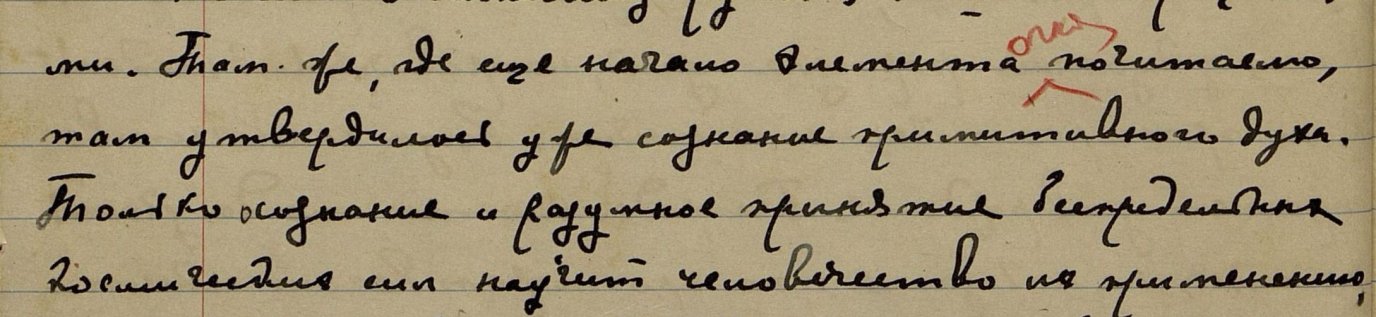 ми. Там же, где еще начало элемента огня почитаемо,
там утвердилось уже сознание примитивного духа.
Только осознание и разумное принятие беспредельных
космических сил научит человечество их применению,